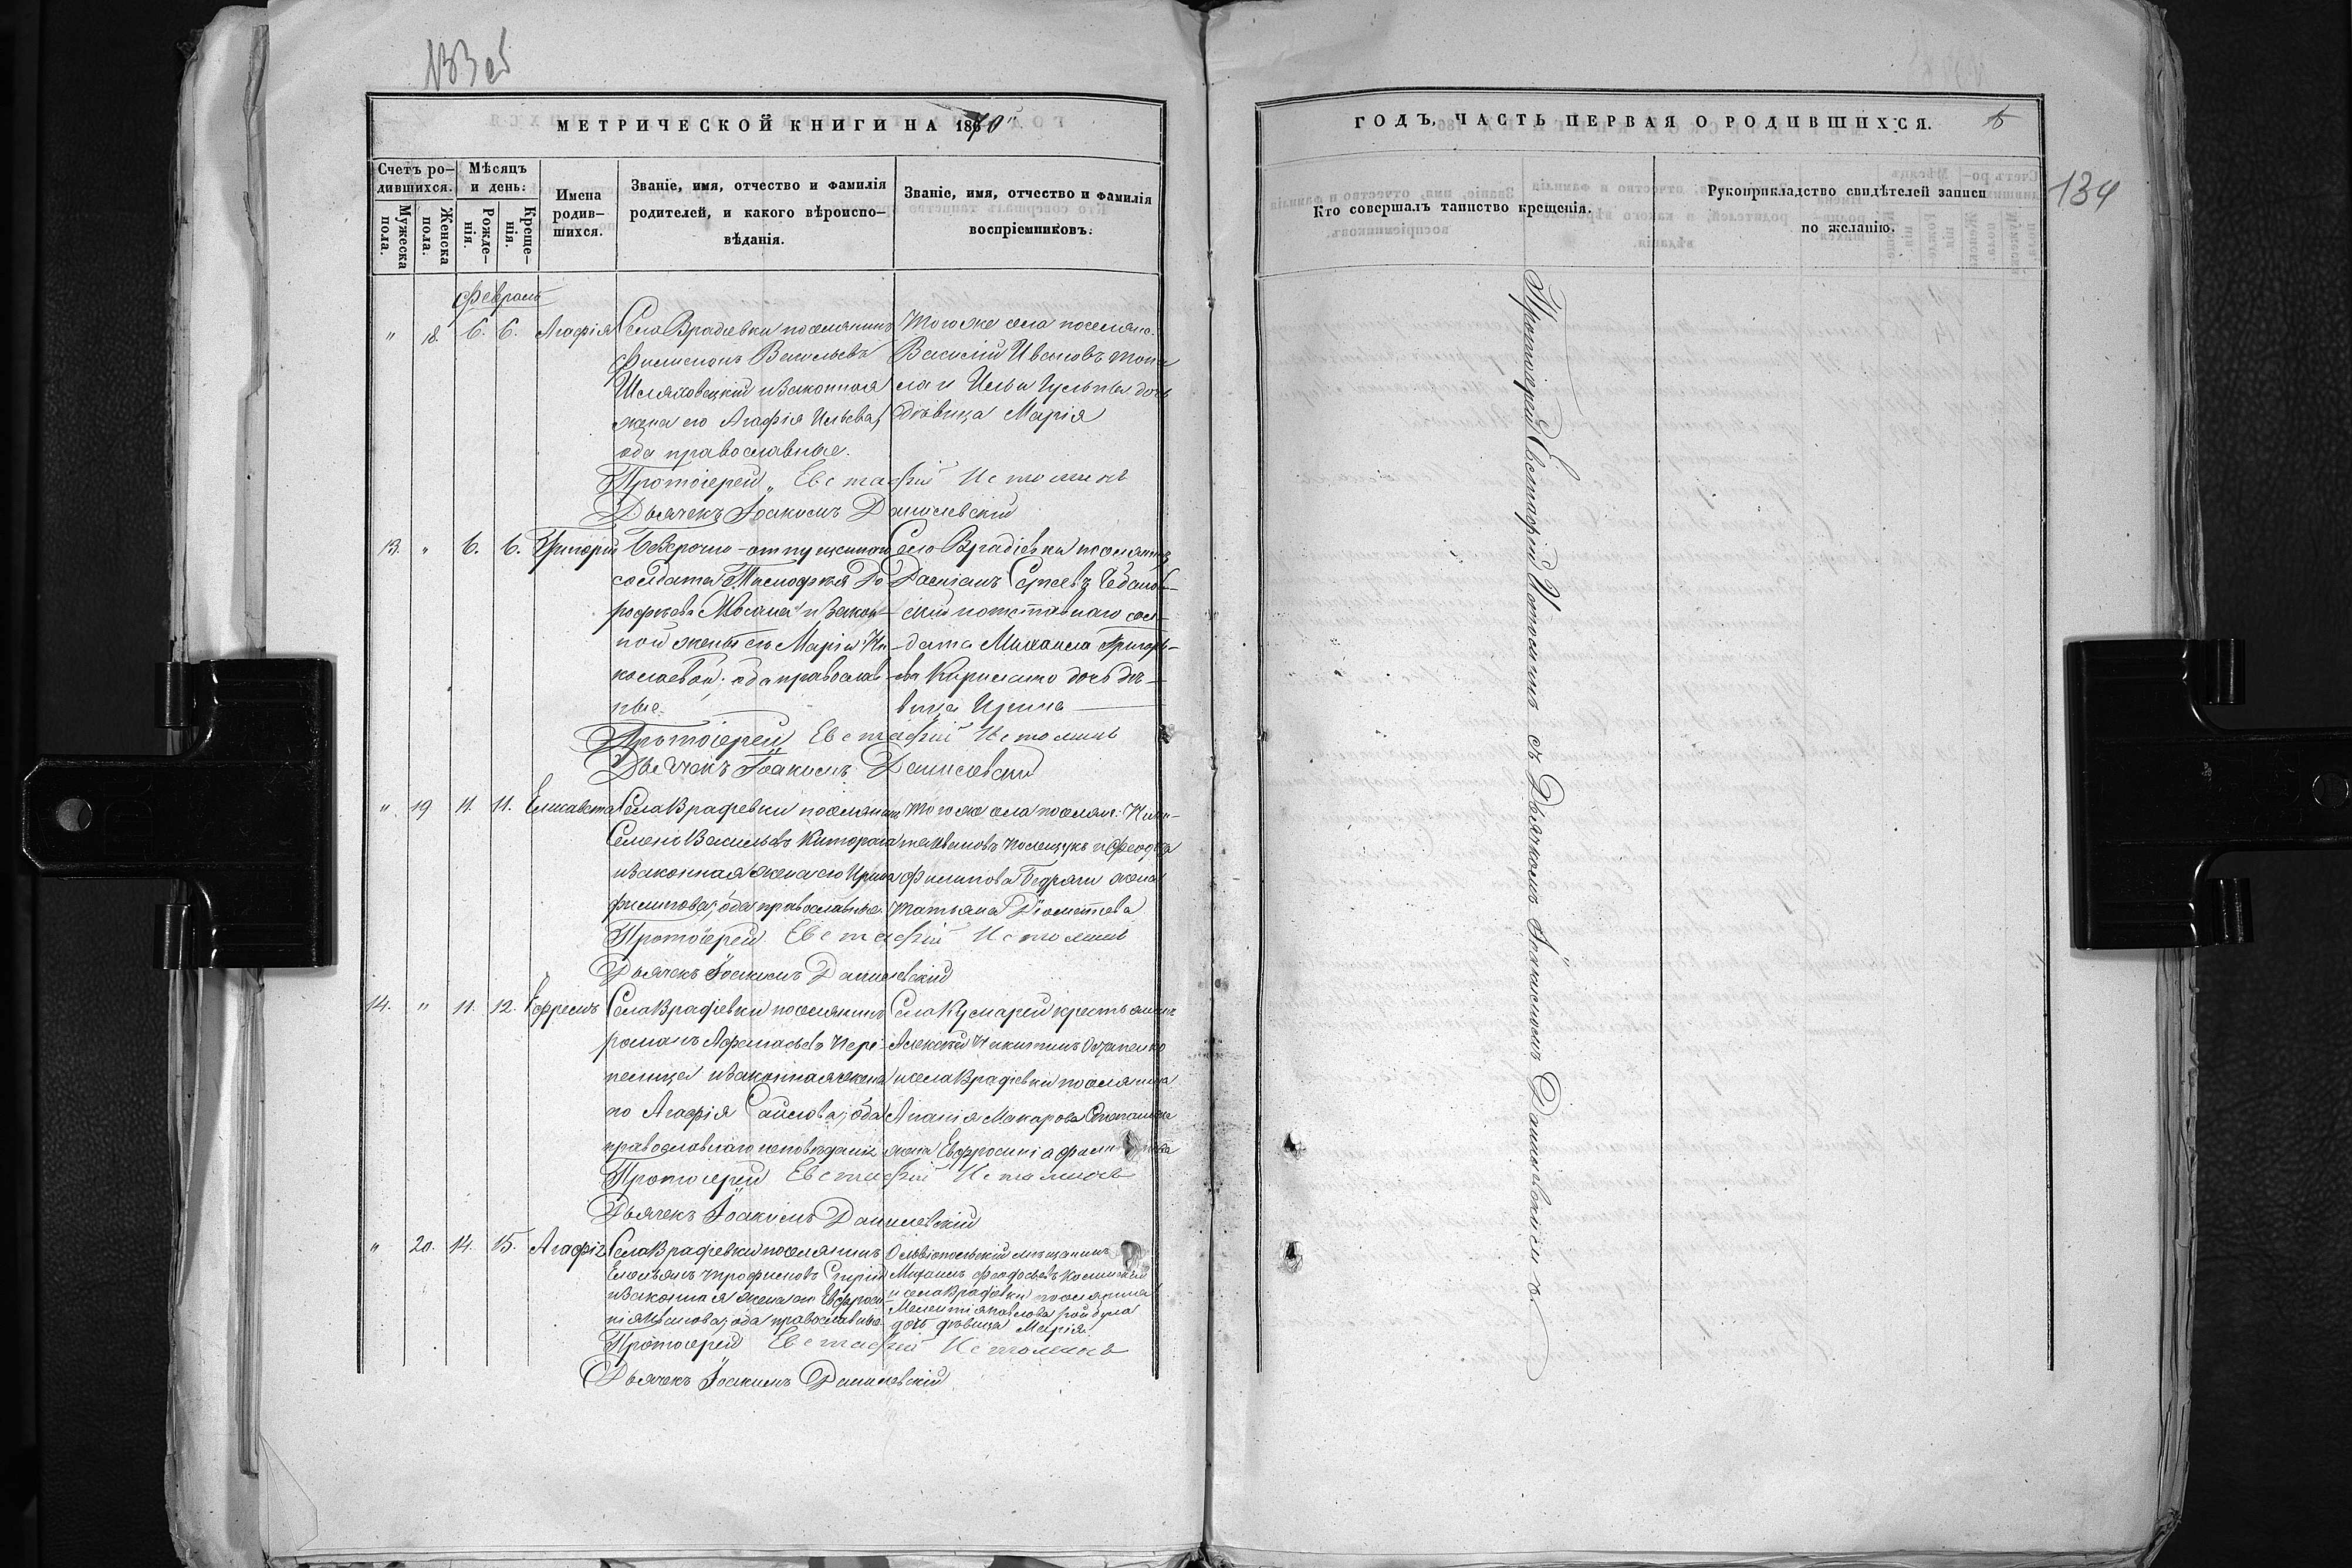 133 об
МЕТРИЧЕСКОЙ КНИГИ НА 1870
Счетъ ро-
дившихся.
Мужеска пола.
Женска пола.
Мѣсяцъ
и день:
Рожде-
нія.
Креще-
нія.
Имена
родив-
шихся.
Званіе, имя, отчество и фамилія
родителей, и какого вѣроиспо-
вѣданія.
Званіе, имя, отчество и фамилія
воспріемниковъ.
Февраль
" 18. 6. 6. Агафія
Села Врадіевки поселянинъ
Филимонъ Васильевъ
Шляховецкій и законная
жена его Агафія Ильева,
оба православные.
Того же села поселяне
Василій Ивановъ
и Ильи дочь
дѣвица Марія
Протоіерей Евстафій Истоминъ
Дьячекъ Іоакимъ Данилевскій
13. " 6. 6. Григорій
Безсрочно-отпускного
солдата Тимофея До-
рофеева и закон-
ной жены его Маріи Ни-
колаевой; оба православ-
ные
Села Врадіевки поселянинъ
Сергеевъ
ский и отставнаго сол-
дата Михаила Григорь-
ева Кириленко дочь дѣ-
вица Ирина
Протоіерей Евстафій Истоминъ
Дьячекъ Іоакимъ Данилевскій
" 19 11. 11. Елисавета
Села Врадіевки поселянинъ
Семенъ Васильевъ
и законная жена его Ирина
Филипова, оба православные.
Того же села поселян. Ники-
та Ивановъ Полещукъ и
Филипова Бедряги жена
Татьяна
Протоіерей Евстафій Истоминъ
Дьячекъ Іоакимъ Данилевскій
14. " 11. 12. Ефремъ
Села Врадіевки поселянинъ
Романъ Афанасьевъ Пере-
пелица и законная жена
его Агафія Саилова, оба
православнаго исповѣданія
Села Кумарей крестьянинъ
Алексей Никитинъ Остапенко
и села Врадіевки поселянина
Макарова Степаненка
жена Евфросинія
Протоіерей Евстафій Истоминъ
Дьячекъ Іоакимъ Данилевскій
" 20. 14. 15. Агафія
Села Врадіевки поселянинъ
Емельянъ Трофимовъ
и законная жена его Евфроси-
нія Иванова, оба православные
Ольвіопольскій мѣщанинъ
Михаилъ Феодосьевъ
и села Врадіевки поселянина
Мелентія Павлова
дочь дѣвица Марія.
Протоіерей Евстафій Истоминъ
Дьячекъ Іоакимъ Данилевскій
ГОДЪ, ЧАСТЬ ПЕРВАЯ О РОДИВШИХСЯ.
134
Кто совершалъ таинство крещенія.
Рукоприкладство свидѣтелей записи
по желанію.
Протоіерей Евстафій Истоминъ съ Дьячкомъ Іоакимомъ Данилевскимъ.